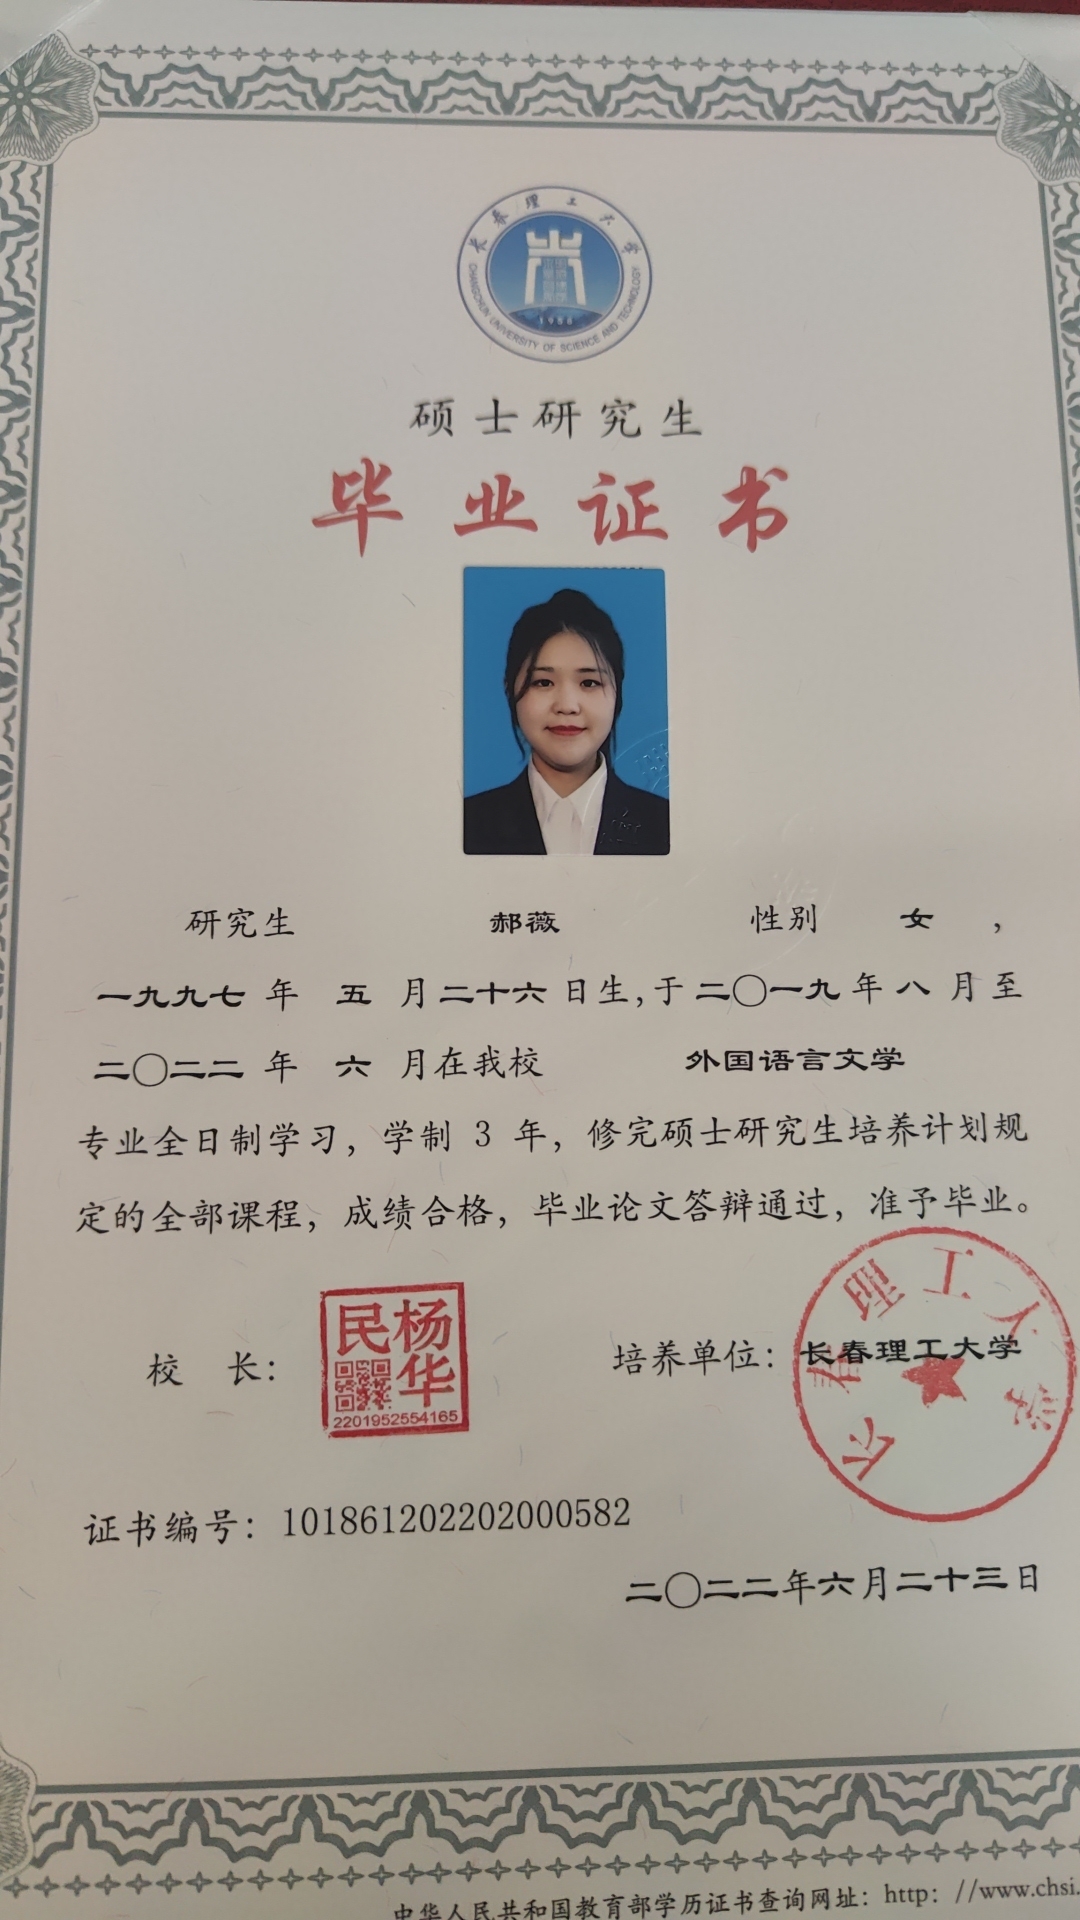 长春理工大学
CHANGCHUN UNIVERSITY OF SCIENCE AND TECHNOLOGY
1958
硕士研究生
毕业证书
研究生 郝薇 性别 女，
一九九七年 五 月二十六日生，于二〇一九年八月至
二〇二二年 六 月在我校 外国语言文学
专业全日制学习，学制 3 年，修完硕士研究生培养计划规
定的全部课程，成绩合格，毕业论文答辩通过，准予毕业。
校 长：
杨华民
2201952554165
培养单位：长春理工大学
长春理工大学
证书编号：101861202202000582
二〇二二年六月二十三日
中华人民共和国教育部学历证书查询网址：http：//www.chsi.